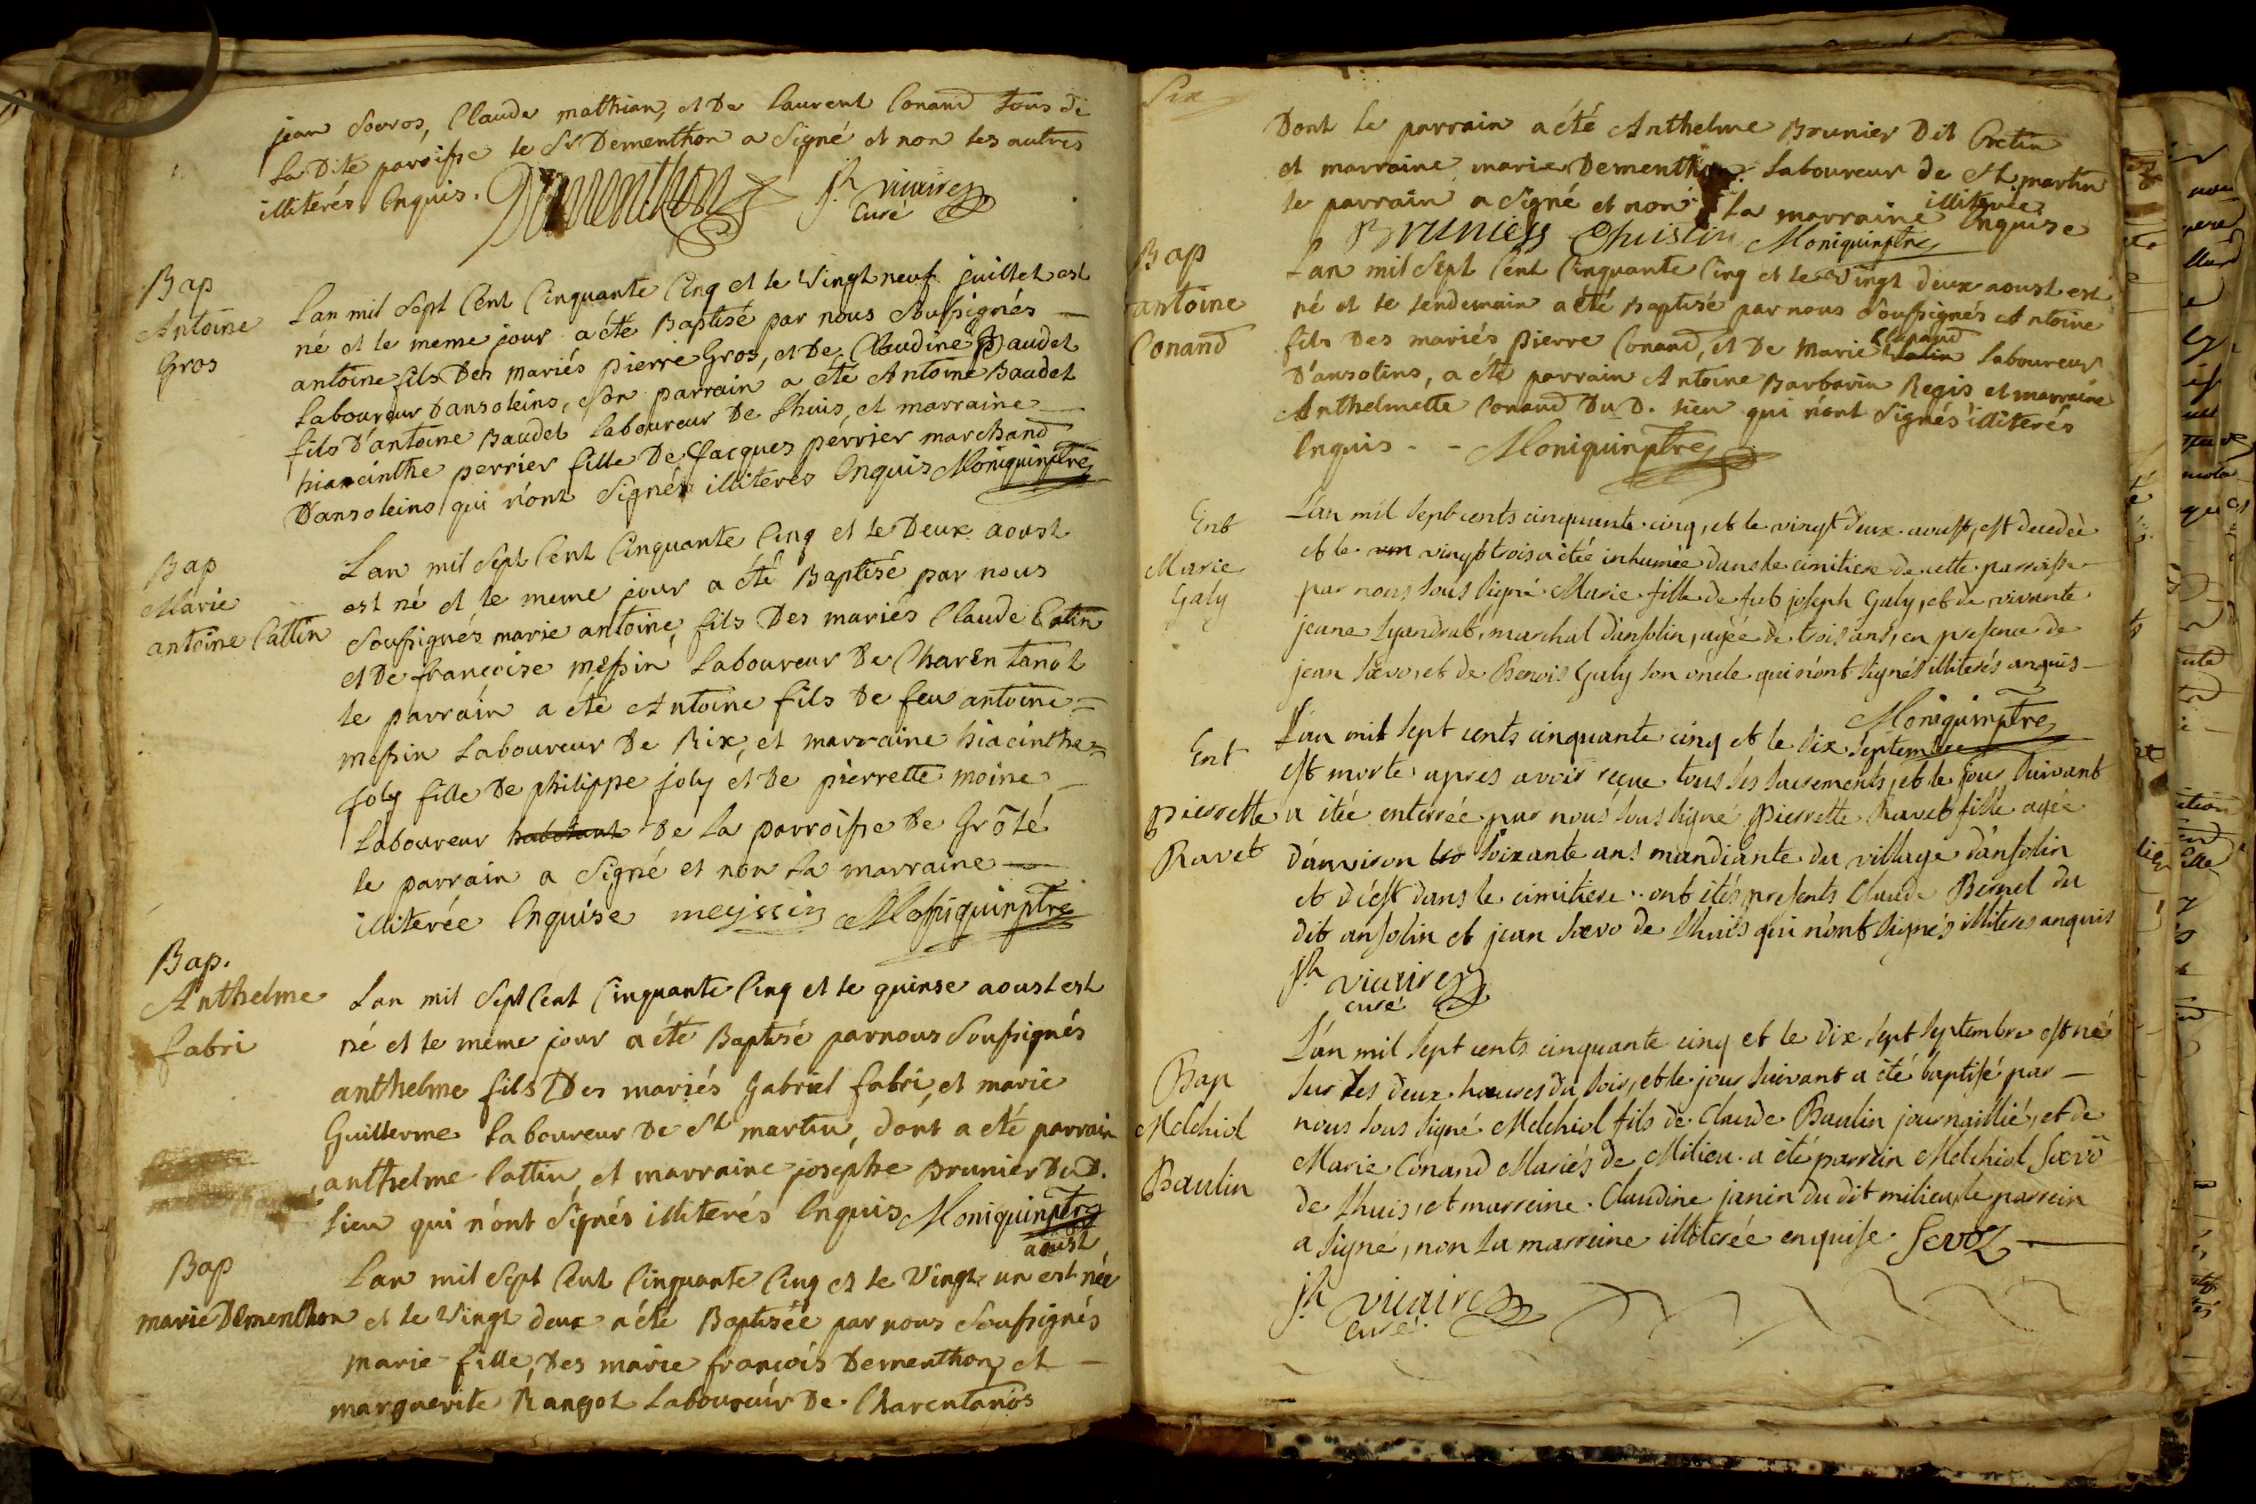 jean Sovros, Claude mathian, et De laurent Conand tous de
la Dite paroisse le Sr Dementhon a Signé et non les autres
illiterés Enquis. Dementhon jh vicaire
Curé
Bap
Antoine
Gros
Lan mil Sept Cent Cinquante Cinq et le Vingt neuf juillet est
né et le meme jour a été Baptisé par nous Soussignés
antoine fils Des mariés pierre Gros, et De Claudine Baudet
Laboureur D'ansoleins, Son parrain a été Antoine Baudet
fils D'antoine Baudet laboureur De Lhuis, et marraine
hiacinthe perrier fille De Jacques perrier marchand
D'ansoleins qui n'ont Signés illiterés Enquis Moniquinptre
Bap
Marie
antoine Cattin
Lan mil Sept Cent Cinquante Cinq et le Deux aoust
est né et le meme jour a été Baptisé par nous
Soussignés marie antoine, fils Des mariés Claude Catin
et De francoise messin Laboureur De Charentanot
le parrain a été Antoine fils De feu antoine
messin Laboureur De Rix, et marraine hiacinthe
Joly fille De philippe joly et De pierrette moine
Laboureur habitant De la parroisse De Grôlé
le parrain a Signé et non la marraine
illiterée Enquise meyssin Moniquinptre
Bap.
Anthelme
fabri
Lan mil Sept Cent Cinquante Cinq et le quinse aoust est
né et le même jour a été Baptisé par nous Soussignés
anthelme fils Des mariés Gabriel fabri, et marie
Guillerme Laboureur De St martin, dont a été parrain
anthelme Cattin, et marraine josephe Brunier Du D.
Lieu qui n'ont Signés illiterés Enquis Moniquinptre
Bap
marie Dementhon
aoust
Lan mil Sept Cent Cinquante Cinq et le Vingt un est née
et le Vingt deux a été Baptisée par nous Soussignés
Marie fille, Des marie francois Dementhon, et
marguerite Rangot Laboureur De Charentanos
Six
Dont le parrain a été Anthelme Brunier Dit Cretin
et marraine marie Dementhon Laboureur de St martin
illiterée
le parrain a Signé et non la marraine Enquise
Brunier Moniquinptre
Bap
antoine
Conand
Lan mil Sept Cent Cinquante Cinq et le Vingt deux aoust est
né et le lendemain a été Baptisé par nous Soussignés Antoine
fils Des mariés Pierre Conand, et De Marie Catin Laboureur
D'ansolins, a été parrain Antoine Barbarin Regis et marraine
Anthelmette Conand Du D. lieu qui n'ont Signés illiterés
Enquis - - Moniquinptre
Ent
Marie
Galy
L'an mil sept cents cinquante cinq, et le vingt deux aoust, est decedeè
et le vingt trois a étée inhumée dans le cimitiere de cette parroisse
par nous sous signé Marie fille de fut joseph Galy, et de vivante
jeane Lyandrat, marchal d'ansolin, agée de trois ans, en presence de
jean Sævo, et de Benois Galy son oncle qui n'ont signés illiterés anquis
Moniquinptre
Ent
pierrette
Ravet
L'an mil sept cents cinquante cinq et le dix septembre
est morte apres avoir reçue tous ses sacrements, et le jour suivant
a étée enterrée par nous sous signé Pierrette Ravet fille agée
d'anvison soixante ans mandiante du village d'ansolin
et d'est dans le cimitiere. ont étés presents Claude Bernel du
dit ansolin et jean Sævo de Lhuis qui n'ont signés illiterés anquis
jh vicaire
curé
Bap
Melchiol
Baulin
L'an mil sept cents cinquante cinq et le dix sept septembre est né
sur les deux heures du soir, et le jour suivant a été baptisé par
nous sous signé Melchiol fils de Claude Baulin journaillié, et de
Marie Conand Mariés de Milieu. a été parrein Melchiol Sævo
de Lhuis, et marreine. Claudine janin du dit milieu, le parrein
a signé, non la marreine illiterée enquise. Sevoz
jh vicaire
Curé.